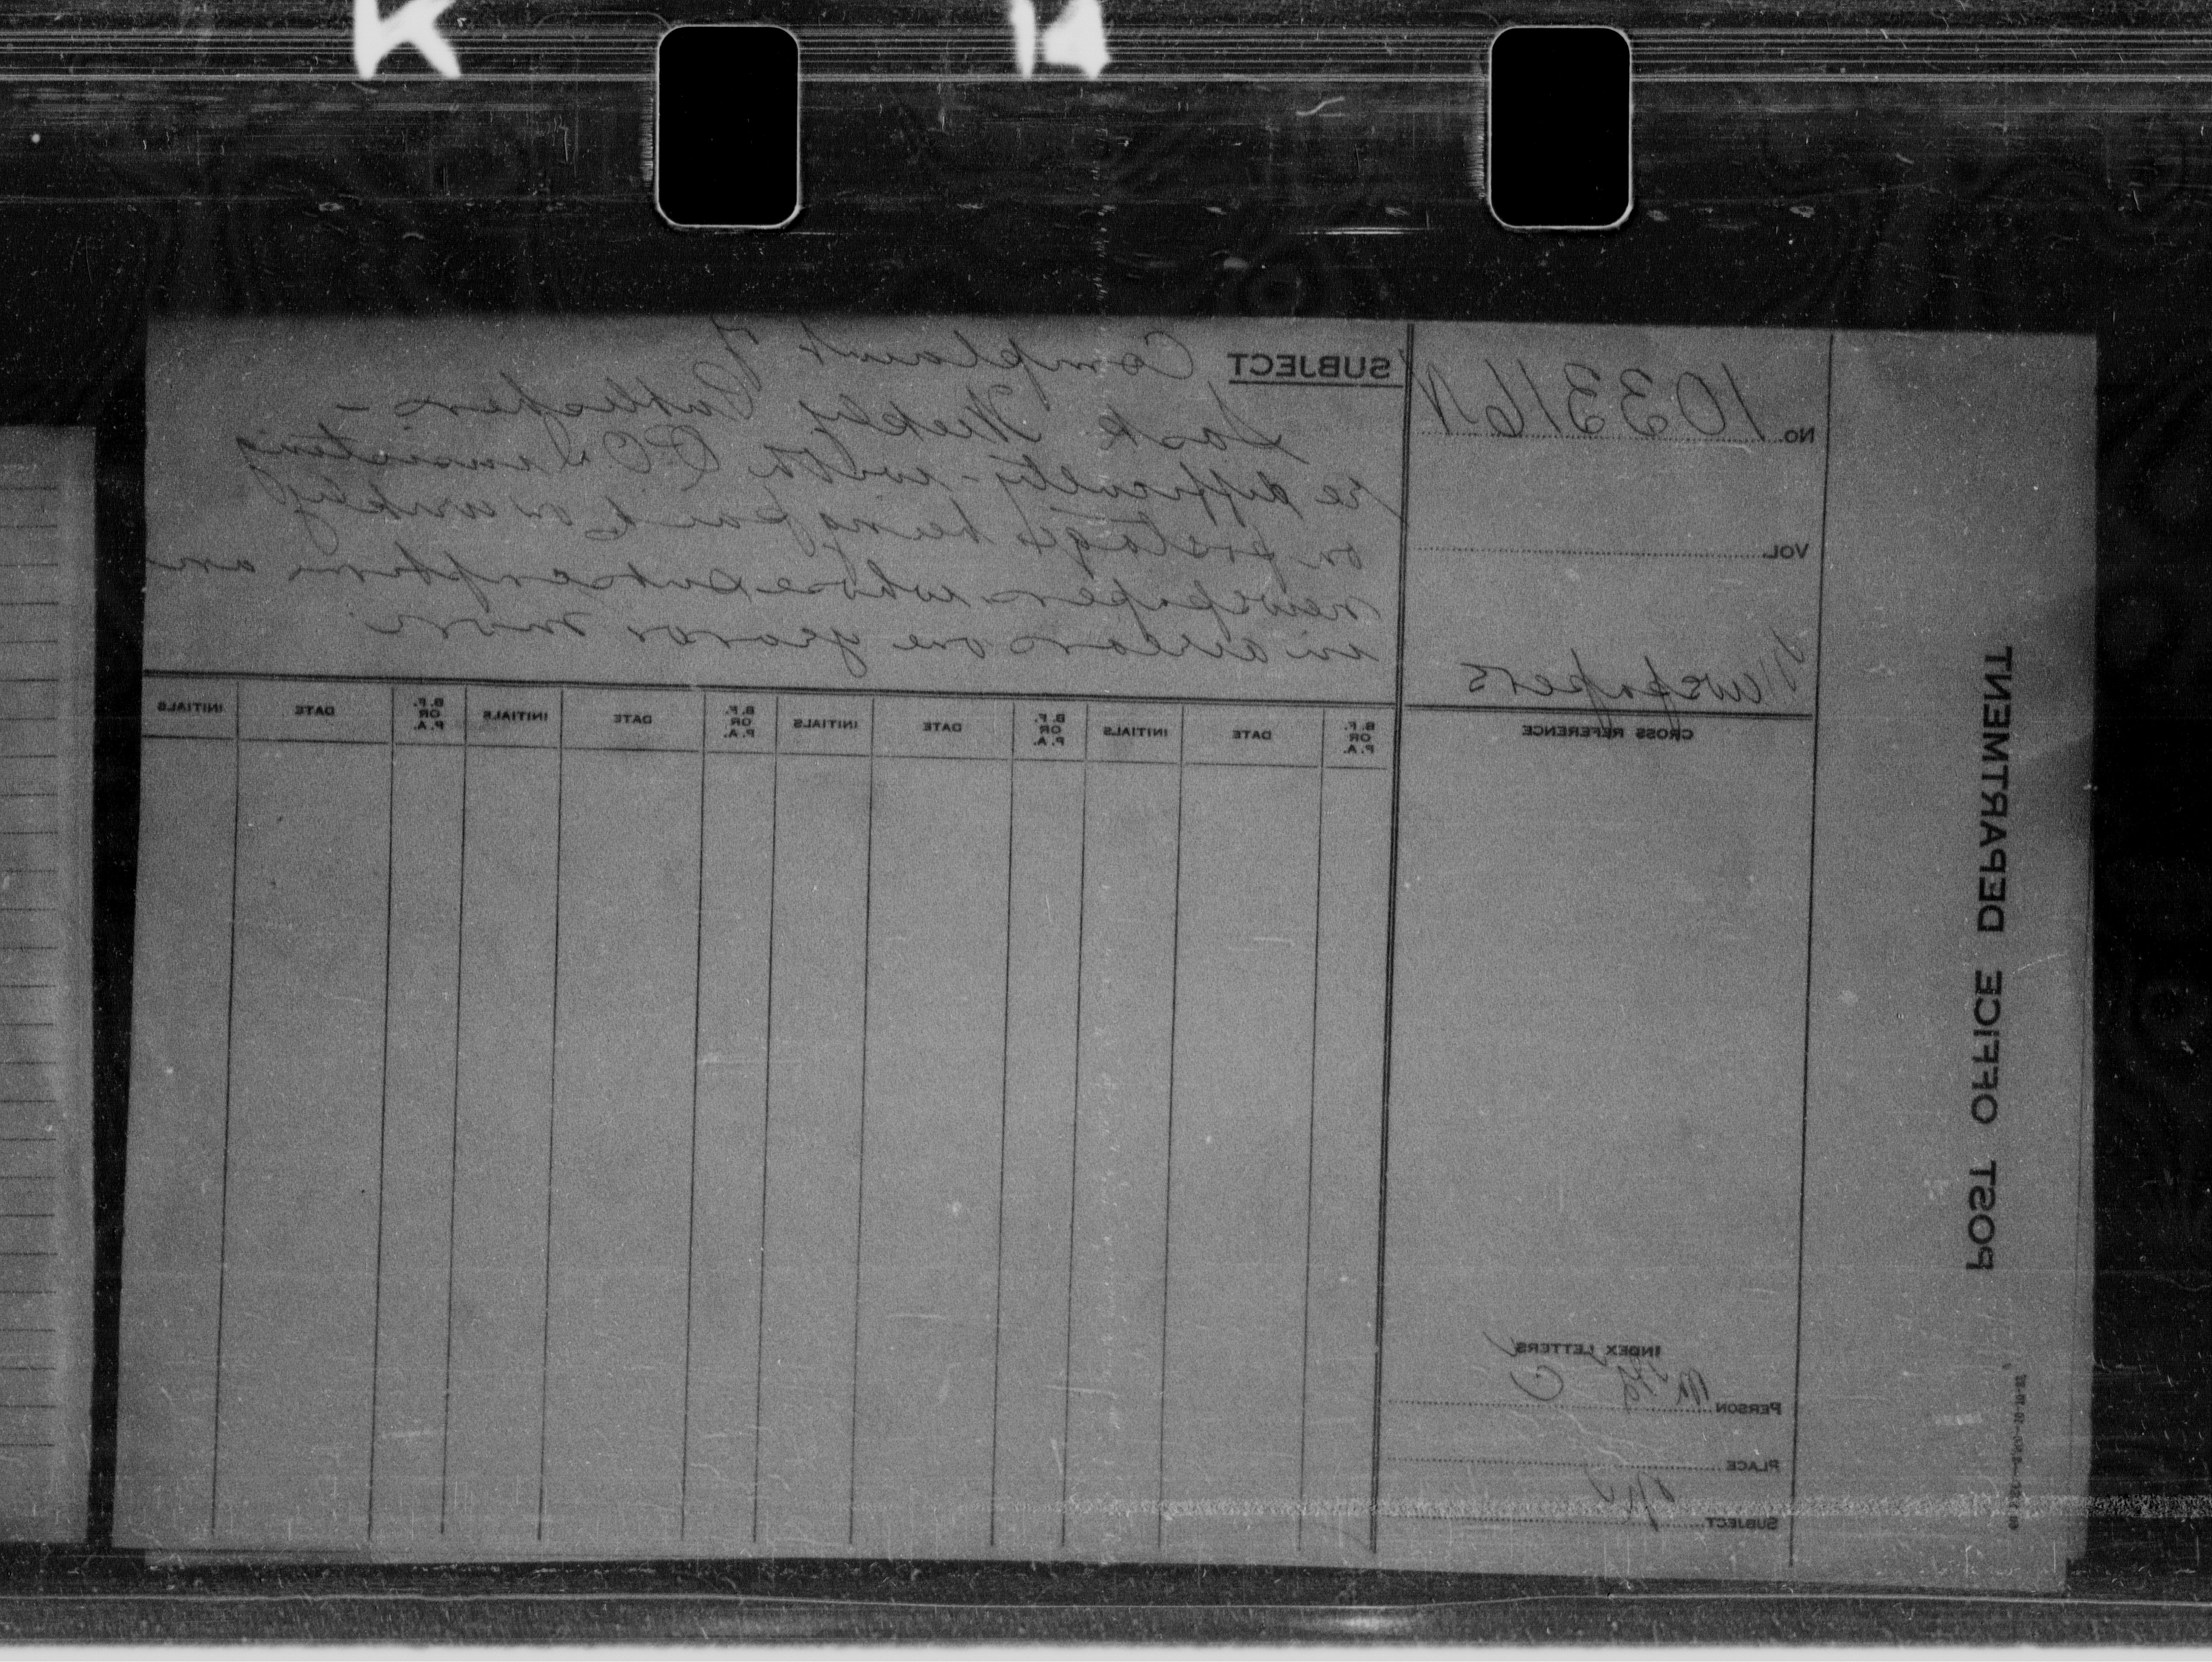 POST OFFICE DEPARTMENT
No. 103316 N
VOL.
Newspapers
CROSS REFERENCE
INDEX LETTERS
PERSON
PLACE
SUBJECT
SUBJECT Complaint of
Sask Weekly Publishers -
re difficulty - with P.O.D insisting
on postage being paid on weekly
newspapers whose subscription are
in arrears one year or more
B.F. OR P.A. DATE INITIALS B.F. OR P.A. DATE INITIALS B.F. OR P.A. DATE INITIALS B.F. OR P.A. DATE INITIALS